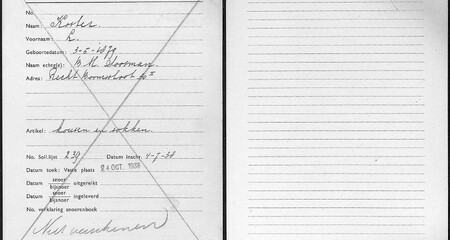 No.
Naam: Koster
Voornaam: L.
Geboortedatum: 3-5-1879
Naam echtg(e): B. M. Sloosman.
Adres: Recht Boomssloot 50 II
Artikel: kousen en sokken.
No. Soll.lijst 239 Datum Inschr. 4-7-38
Datum toek: Vaste plaats 24 OCT. 1938
snoer
Datum bijsnoer uitgereikt
snoer
Datum bijsnoer ingeleverd
No. verklaring snoerenboek
Niet verschenen